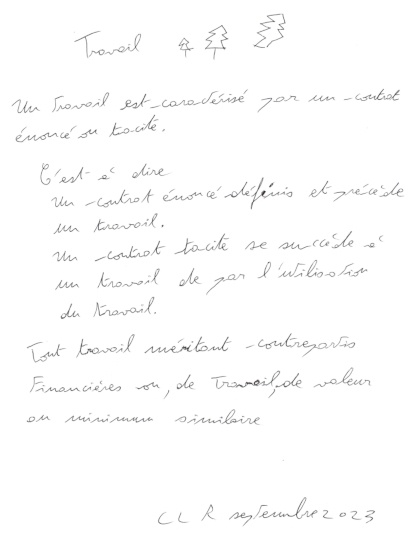 Travail
Un Travail est caractérisé par un contrat
énoncé ou tacite.
C'est à dire
Un contrat énoncé définis et précède
un travail.
Un contrat tacite se succède à
un travail de par l'utilisation
du travail.
Tout travail méritant contreparties
Financières ou, de Travail, de valeur
au minimum similaire
CLR septembre 2023